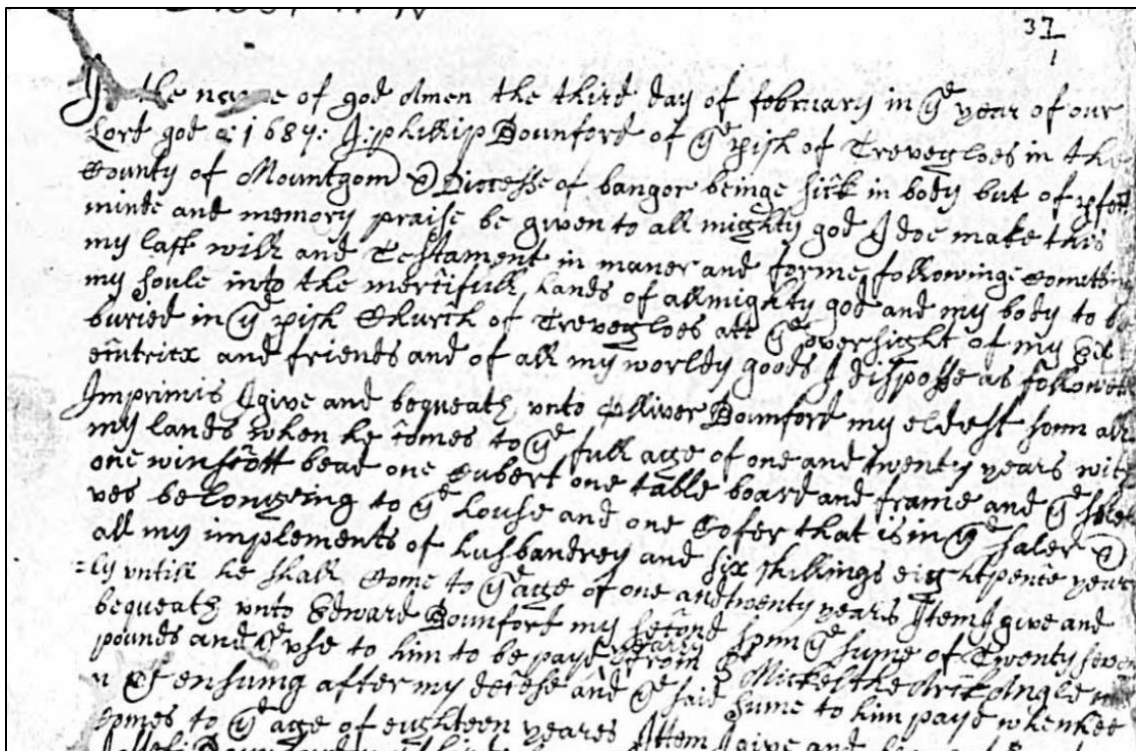 37
1
In the name of god Amen the third day of february in ye year of our
Lord god 1687: I: phillip Bounford of ye pish of Trevegloes in the
County of Mountgom & Diccesse of bangor beinge sick in body but of pfect
minde and memory praise be given to allmighty god I doe make this
my last will and Testament in maner and forme followinge Comitting
my soule into the mercifull hands of allmighty god and my body to be
buried in ye pish Church of Trevegloes att ye oversight of my Ex
ecutricx and friends and of all my worldy goods I disposse as followe
Imprimis I give and bequeath unto Olliver Bounford my eldest sonn all
my lands when he comes to ye full age of one and twenty years wit
one winscott bead one Cubert one table board and frame and ye
ves belongeing to ye house and one Cofer that is in ye &
all my implements of husbandrey and six shillings eightpence year
=ly untill he shall Come to ye age of one and twenty years Item I give and
bequeath unto Edward Bounford my second sonn ye sume of Twenty seven
pounds and ye use to him to be payd yearly from St Mickel the Arck Angle
ensuing after my decese and ye said sume to him payd when hee
Comes to ye age of eighteen yeares Ittem I give and